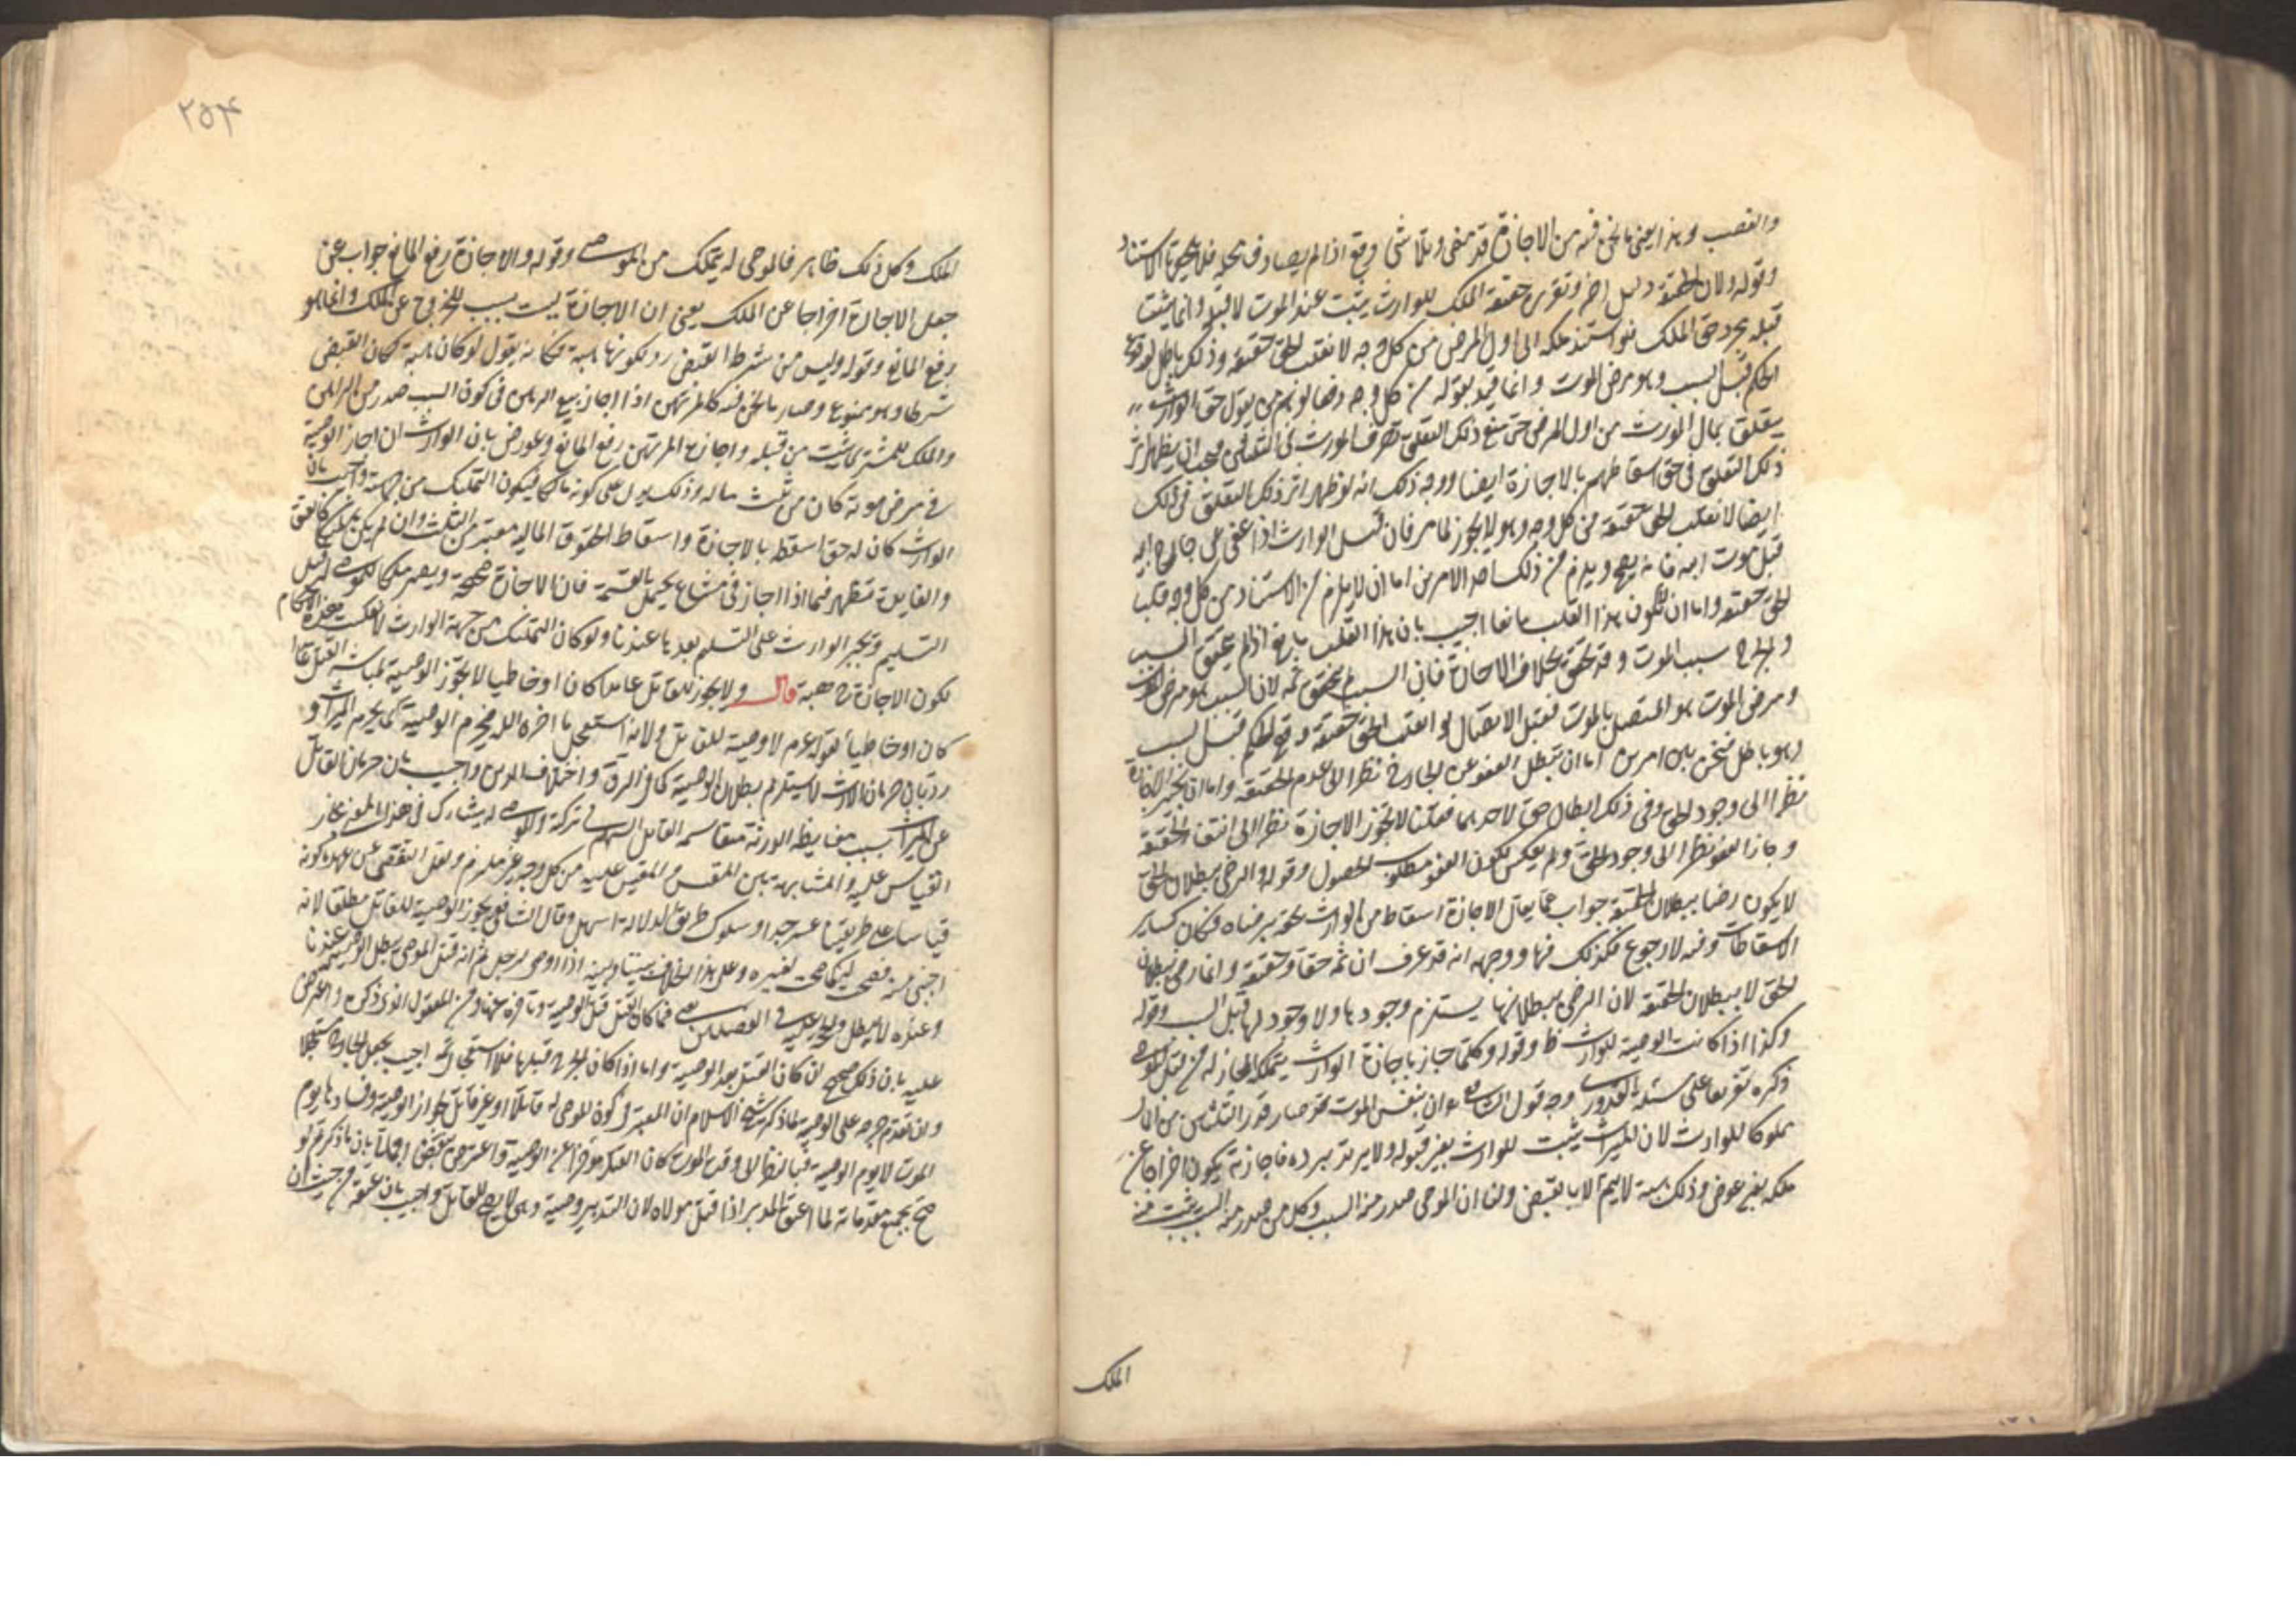 والغصب وهذا يعني ما نحن فيه من الاجازة قد مضى وتلاشى وقع اذا لم يصادف محله فلا يتحقق الاستناد
وقوله ولان الحقيقة دليل اخر وتقريره حقيقة الملك للوارث يثبت عند الموت لا قبله وانما يثبت
قبله مجرد حق الملك فلو استند ملكه الى اول المرض من كل وجه لانقلب الحق حقيقة وذلك باطل لوقوع
الحكم قبل السبب وهو مرض الموت وانما قيد بقوله من كل وجه دفعا لوهم من يقول حق الوارث
يتعلق بمال المورث من اول المرض حتى منع ذلك التعلق تصرف المورث في الثلثين فيجب ان يظهر اثر
ذلك التعلق في حق اسقاطهم بالاجازة ايضا ووجه ذلك انه لو ظهر اثر ذلك التعلق في ذلك
ايضا لانقلب الحق حقيقة من كل وجه وهو لا يجوز لما مر فان قيل الوارث اذا عفى عن جارح ابيه
قبل موت ابيه فانه يصح ويلزم من ذلك احد الامرين اما ان لا يلزم من الاستناد من كل وجه قلب
الحق حقيقة واما ان لا يكون هذا القلب مانعا اجيب بان هذا القلب مانع اذا لم يتحقق السبب
والجرح سبب الموت وقد تحقق بخلاف الاجازة فان السبب لم يتحقق ثمه لان السبب هو مرض الموت
ومرض الموت هو المتصل بالموت فقبل الاتصال لو انقلب الحق حقيقة وقع الحكم قبل السبب
وهو باطل فنحن بين امرين اما ان تبطل العفو عن الجارح نظرا الى عدم الحقيقة واما ان نجيز الاجازة
نظرا الى وجود الحق وفي ذلك ابطال حق لاحدهما فقلنا لا تجوز الاجازة نظرا الى انتفاء الحقيقة
وجاز العفو نظرا الى وجود الحق ولم يعكس لكون العفو مطلوب الحصول وقوله والرضى ببطلان الحق
لا يكون رضا ببطلان الحقيقة جواب عما يقال الاجازة اسقاط من الوارث حقه برضاه فكان كساير
الاسقاطات وفيه لا رجوع فكذلك فيها ووجهه انه قد عرف ان ثمه حقا وحقيقة وانما رضي ببطلان
الحق لا ببطلان الحقيقة لان الرضى ببطلانها يستلزم وجودها ولا وجود لها قبل السبب وقوله
وكذا اذا كانت الوصية للوارث ظ وقوله وكلما جاز باجازة الوارث يتملكه المجاز له من قبل الموصي
ذكره تفريعا على مسئلة القدوري وجه قول الشافعي وان بنفس الموت صار قدر الثلثين من المال
مملوكا للوارث لان الميراث يثبت للوارث بغير قبوله ولا يرتد برده فاجازته يكون اخراجا عن
ملكه بغير عوض وذلك هبة لا يتم الا بالقبض ولنا ان الموصي صدر منه السبب وكل من صدر منه السبب يثبت منه
الملك
٢٥٤
الملك وكل ذلك ظاهر فالموصى له يتملك من الموصي وقوله والاجازة رفع المانع جواب عن
جعل الاجازة اخراجا عن الملك يعني ان الاجازة ليست بسبب للخروج عن الملك وانما هو
رفع المانع وقوله وليس من شرطه القبض رد لكونها هبة فكانه يقول لو كان هبة لكان القبض
شرطا وهو ممنوع وصار ما نحن فيه كالمرتهن اذا اجاز بيع الراهن في كون السبب صدر من الراهن
والملك للمشتري يثبت من قبله واجازة المرتهن رفع المانع وعورض بان الوارث ان اجاز الوصية
في مرض موته كان من ثلث ماله وذلك يدل على كونه مالكا فيكون التمليك من جهته واجيب بان
الوارث كان له حق اسقط بالاجازة واسقاط الحقوق المالية معتبر من الثلث وان لم يكن تمليكا كالعتق
والفايدة تظهر فيما اذا اجاز في مشاع يحتمل القسمة فان الاجازة صحيحة ويصير ملكا للموصى له قبل
التسليم ويجبر الوارث على التسليم بعدها عندنا ولو كان التمليك من جهة الوارث لانعكست هذه الاحكام
لكون الاجازة ح هبة قال ولا يجوز للقاتل عامدا كان او خاطيا لا تجوز الوصية لمباشر القتل عامدا
كان او خاطيا لقوله عم لا وصية للقاتل ولانه استعجل ما اخره الله فيحرم الوصية كما يحرم الميراث و
رد بان حرمان الارث لا يستلزم بطلان الوصية كما في الرق واختلاف الدين واجيب بان حرمان القاتل
عن الميراث بسبب مغايظة الورثة مقاسمة القاتل اياهم في تركة والموصى له يشارك في هذا المعنى فجاز
القياس عليه والمشابهة بين المقيس والمقيس عليه من كل وجه غير ملتزم ولعل التفصي عن عهدة كونه
قياسا على طريقتنا عسر جدا وسلوك طريق الدلالة اسهل وقال الشافعي يجوز الوصية للقاتل مطلقا لانه
اجنبي منه فصح له كما صح لغيره وعلى هذا الخلاف بيننا وبينه اذا اوصى لرجل ثم انه قتل الموصي يبطل الوصية عندنا
وعنده لا يبطل والحجة عليه في الفصلين فيما كان القتل قبل الوصية وتاخره عنها ومن المعقول الذي ذكره واعترض
عليه بان ذلك صحيح ان كان القتل بعد الوصية واما اذا كان الجرح قبلها فلا استعجال ثمه اجيب بجعل الجارح مستعجلا
وان تقدم جرحه على الوصية لما ذكر شيخ الاسلام ان المعتبر في كون الموصى له قاتلا او غير قاتل لجواز الوصية وفسادها يوم
الموت لا يوم الوصية فبالنظر الى وقت الموت كان القتل مؤخرا عن الوصية واعترض بنقض اجمالي بان ما ذكر لو
صح بجميع مقدماته لما اعتق المدبر اذا قتل مولاه لان التدبير وصية وهي لا يصح للقاتل واجيب بان عتقه من حيث ان